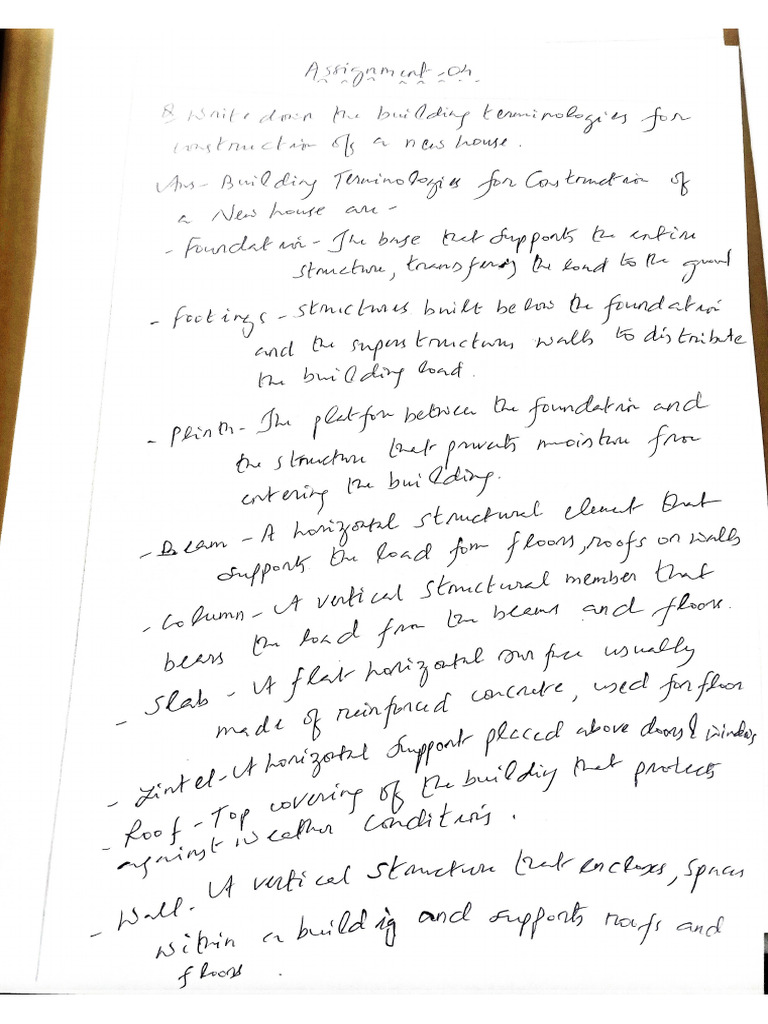 Assignment-04
Q Write down the building terminologies for
construction of a new house.
Ans- Building Terminologies for Construction of
a New house are-
- Foundation - The base that supports the entire
structure, transfering the load to the ground
- Footings - structures built below the foundation
and the superstructures walls to distribute
the building load.
- Plinth - The platfom between the foundation and
the structure that prevents moisture from
entering the building.
- Beam - A horizontal structural element that
supports the load from floors, roofs or walls
- Column - A vertical structural member that
bears the load from the beams and floors.
- Slab - A flat horizontal surface usually
made of reinforced concrete, used for floor
- Lintel - A horizontal support placed above doors & windows
- Roof - Top covering of the building that protects
against weather conditions.
- Wall - A vertical structure that encloses, spaces
within a building and supports roofs and
floors.